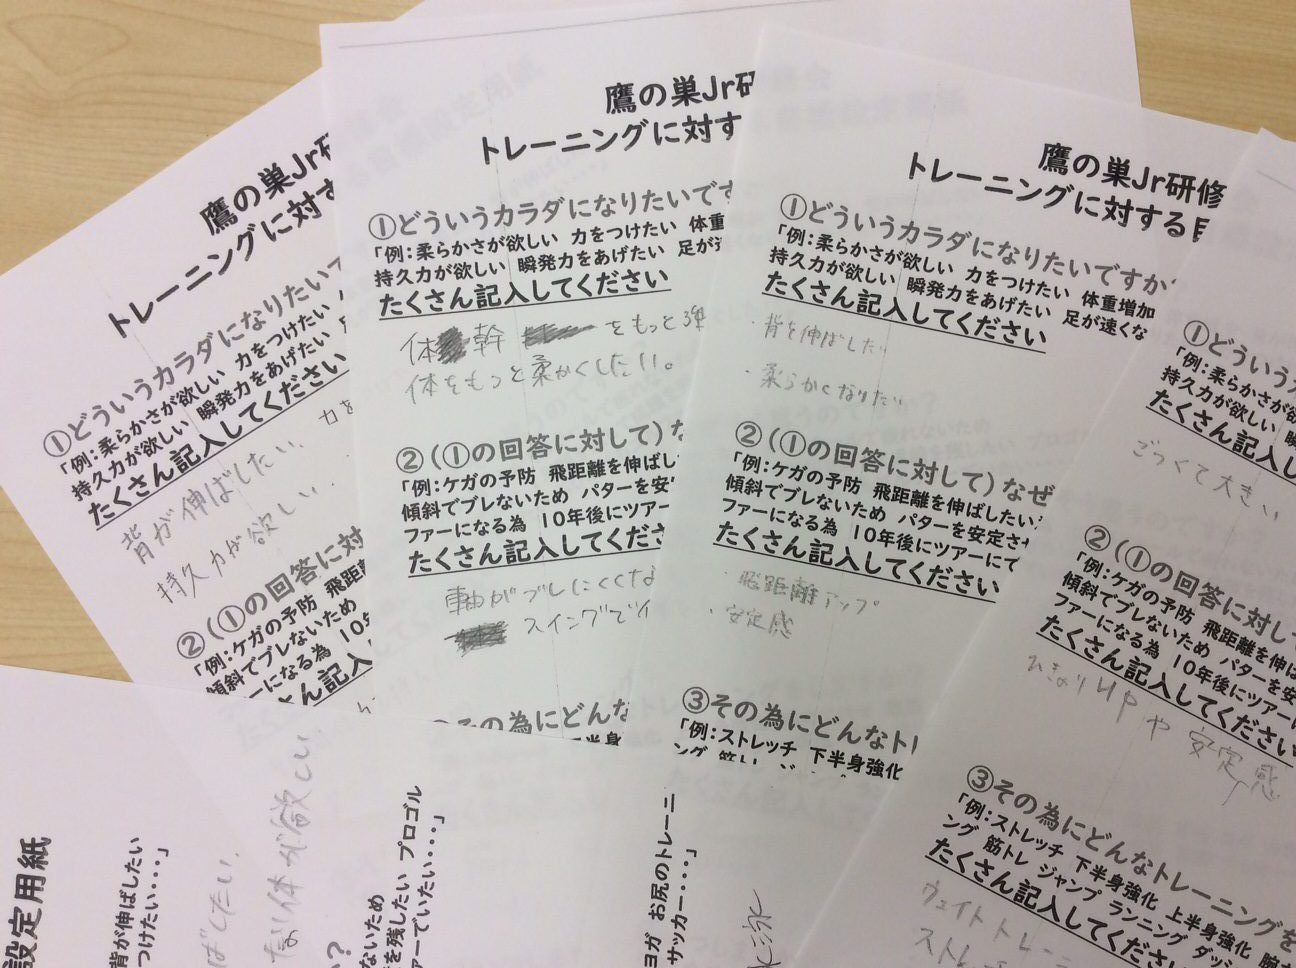 鷹の巣Jr研
トレーニングに対す
①どういうカラダになりたいで
「例：柔らかさが欲しい 力をつけたい
持久力が欲しい 瞬発力をあげたい
たくさん記入してください
背が伸ばしたい．力を
持久力が欲しい．
②（①の回答に対
「例：ケガの予防 飛距離
傾斜でブレないため
ファーになる為 10
さん記入し
鷹の巣Jr研
トレーニングに対す
①どういうカラダになりたいです
「例：柔らかさが欲しい 力をつけたい 体重
持久力が欲しい 瞬発力をあげたい 足が速
たくさん記入してください
体幹をもっと強
体をもっと柔かくしたい。
②（①の回答に対して）な
「例：ケガの予防 飛距離を伸ばし
傾斜でブレないため パターを安
ファーになる為 10年後にツアー
たくさん記入してくださ
軸がブレにくくな
スイングで
その為にどんな
下半身
鷹の巣Jr研修
トレーニングに対する目
①どういうカラダになりたいですか
「例：柔らかさが欲しい 力をつけたい 体重増加
持久力が欲しい 瞬発力をあげたい 足が速くな
たくさん記入してください
・背を伸ばしたい
・柔らかくなりたい
②（①の回答に対して）なぜ
「例：ケガの予防 飛距離を伸ばしたい
傾斜でブレないため パターを安定させ
ファーになる為 10年後にツアーにて
たくさん記入してください
・飛距離アップ
・安定感
③その為にどんなト
「例：ストレッチ 下半身強化
ング 筋トレ
①どういうカラ
「例：柔らかさが欲
持久力が欲しい 瞬
たくさん記入し
ごつくて大きい
②（①の回答に対し
「例：ケガの予防 飛距離を伸ば
傾斜でブレないため パターを安
ファーになる為 10年後にツアー
たくさん記入してください
ひきょりUPや安定感
③その為にどんなトレーニングを
「例：ストレッチ 下半身強化 上半身強化 腕
ング 筋トレ ジャンプ ランニング ダッシ
たくさん記入してくださ
ウェイトトレーニ
ストレ
設定用紙
背が伸ばしたい
つけたい・・・・」
ばしたい．
体が欲しい
か？
ないため
を残したい プロゴル
アーでていたい・・・・」
ヨガ お尻のトレーニ
サッカー・・・・」